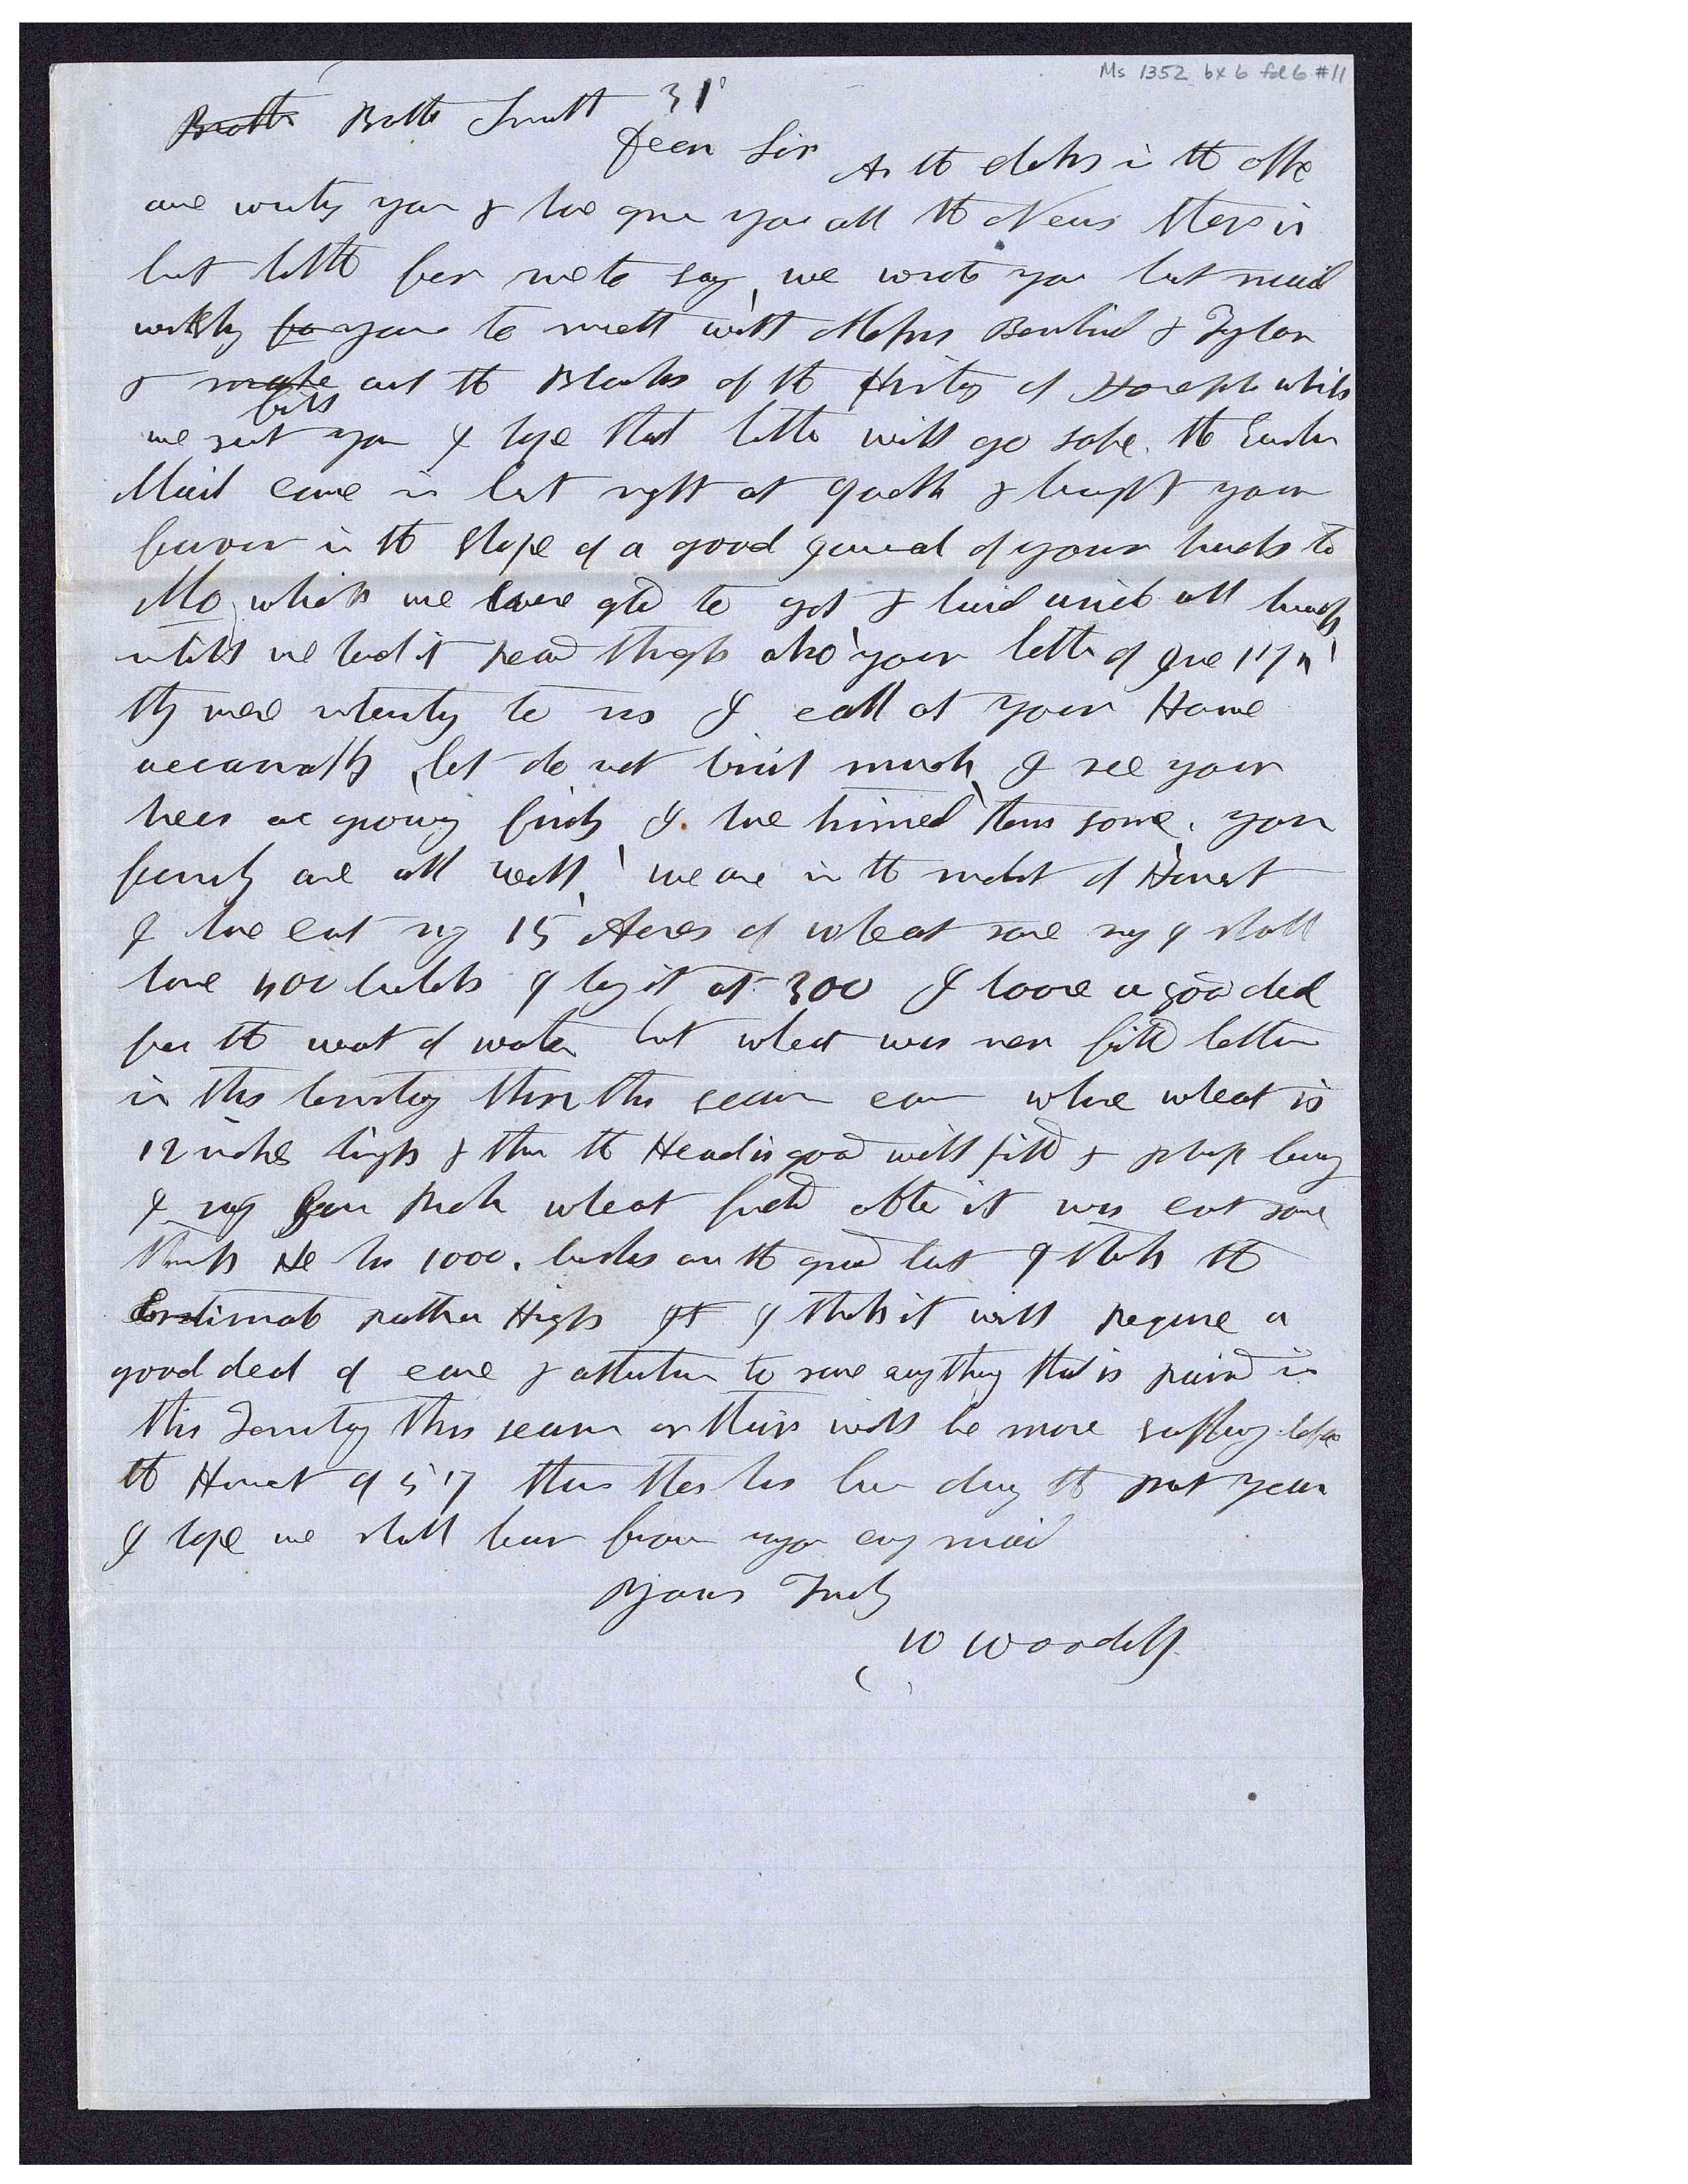 Ms 1352 bx 6 fd 6 #11
Broth Broth Smith 31
Dear Sir As the clerks in the office
are writing you & have given you all the News there is
but little for me to say, we wrote you last mail
wishing for you to meet with Messrs Bernhisel & Taylor
& make out the Blanks of the History of Joseph which
fill
we sent you I hope that letter will go safe. the Eastern
Mail came in last night at & brought your
favor in the shape of a good Journal of your travels to
Mo, which we were glad to get & laid aside all
untill we had it read through also your letter of June 17th
they were interesting to us I call at your Home
occasionally, but do not visit much I see your
trees are growing finely I have trimed them some. your
family are all well, we are in the midst of Harvest
I have cut my 15 Acres of wheat some say I shall
have 400 bushels I say it at 300 I loose a good deal
for the want of water but wheat was never filld better
in this territory than this season even where wheat is
12 inches high & thin the Head is good well filld & plump berry
& my wheat after it was cut some
thinks He has 1000. bushes on the ground but I think the
Estimate rather High I think it will require a
good deal of care & attention to save anything that is raised in
this Territory this season or there will be more suffering before
the Harvest of 57 than there has been during the past year
I hope we shall hear from you evry mail
Yours Truly
W Woodruff